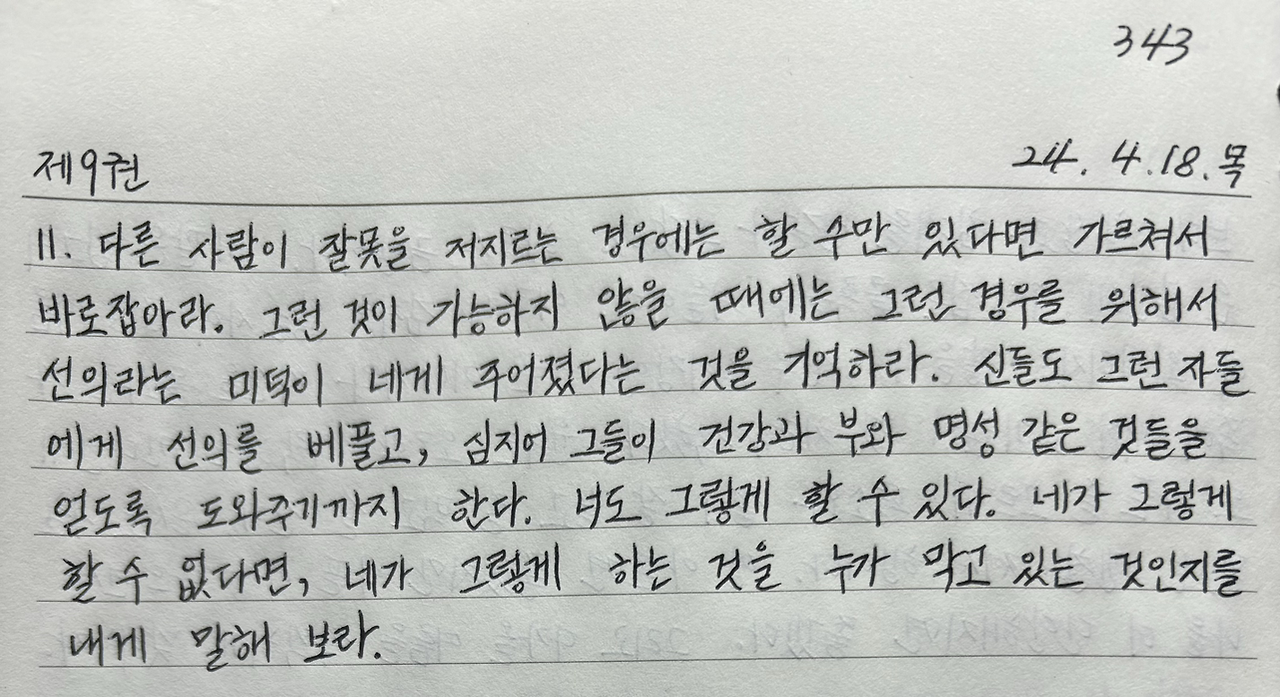 343
제9권 24. 4.18.목
11. 다른 사람이 잘못을 저지르는 경우에는 할 수만 있다면 가르쳐서
바로잡아라. 그런 것이 가능하지 않을 때에는 그런 경우를 위해서
선의라는 미덕이 네게 주어졌다는 것을 기억하라. 신들도 그런 자들
에게 선의를 베풀고, 심지어 그들이 건강과 부와 명성 같은 것들을
얻도록 도와주기까지 한다. 너도 그렇게 할 수 있다. 네가 그렇게
할 수 없다면, 네가 그렇게 하는 것을 누가 막고 있는 것인지를
내게 말해 보라.